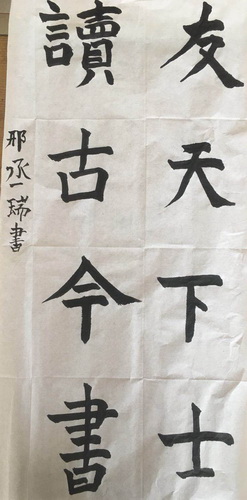 友天下士
讀古今書
邢丞一瑞書